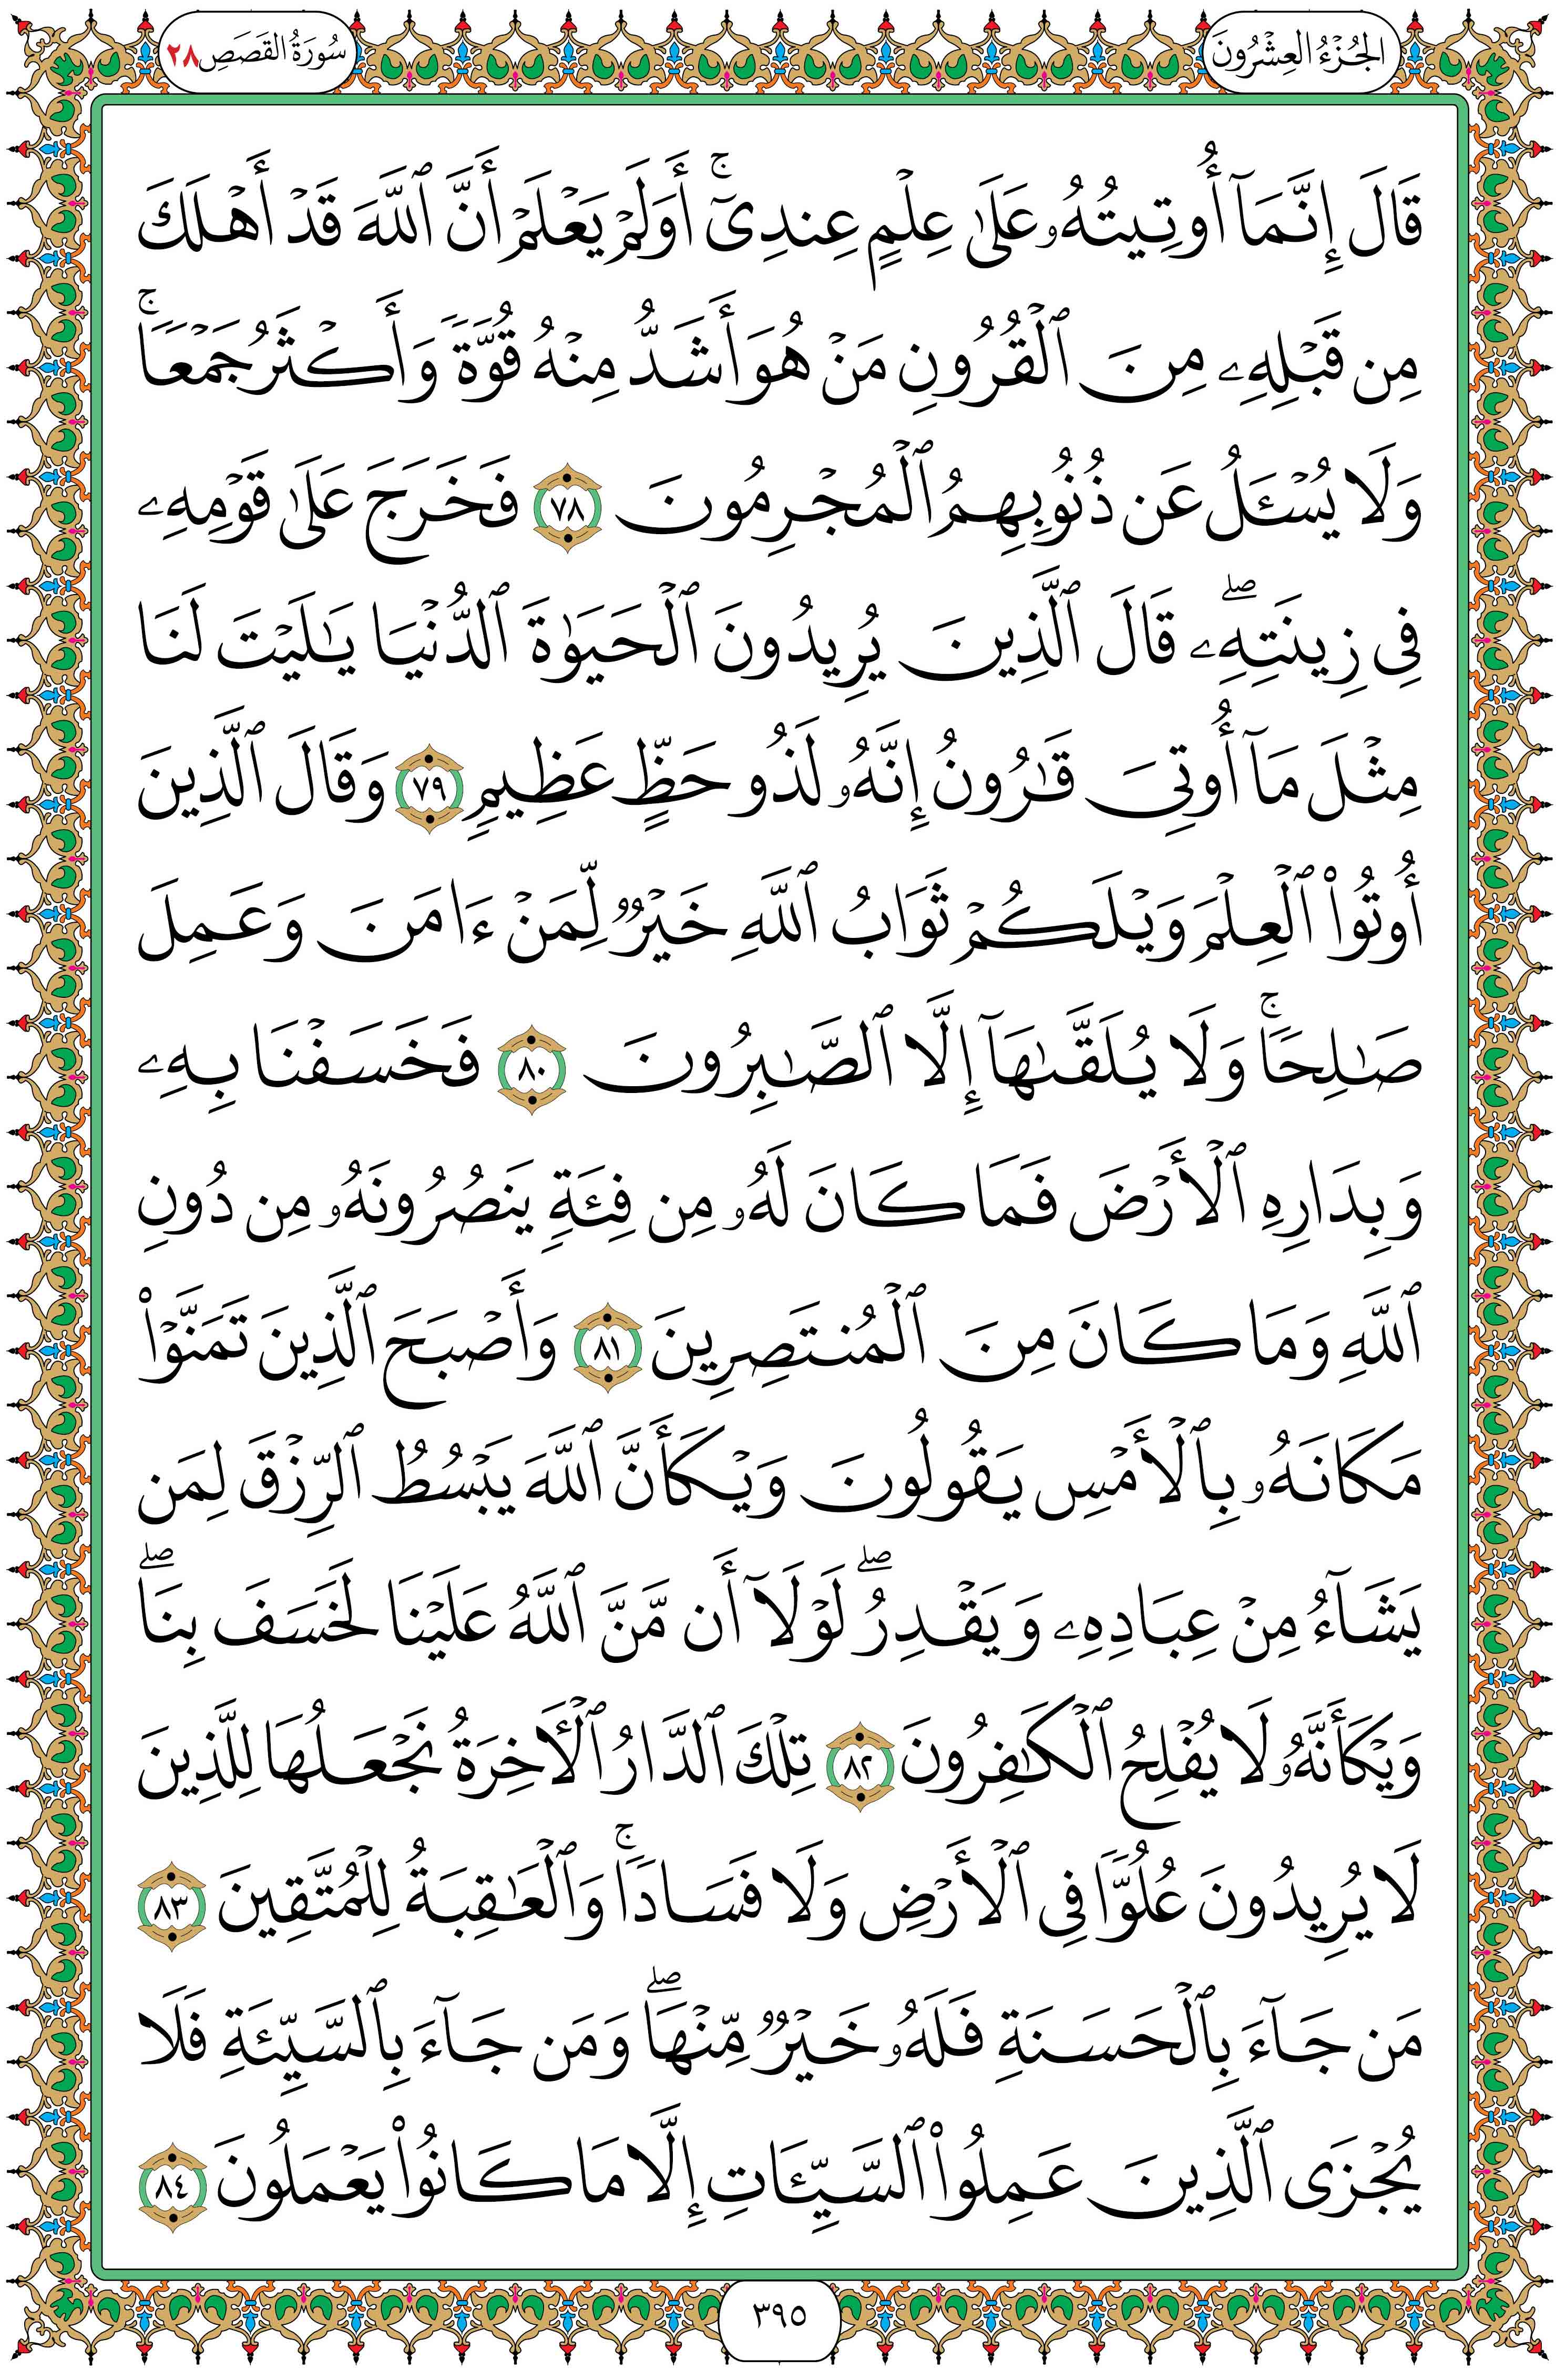 الجُزْءُ العِشْرُونَ
سُورَةُ القَصَصِ ٢٨
قَالَ إِنَّمَآ أُوتِيتُهُۥ عَلَىٰ عِلْمٍ عِندِىٓ ۚ أَوَلَمْ يَعْلَمْ أَنَّ ٱللَّهَ قَدْ أَهْلَكَ
مِن قَبْلِهِۦ مِنَ ٱلْقُرُونِ مَنْ هُوَ أَشَدُّ مِنْهُ قُوَّةً وَأَكْثَرُ جَمْعًا ۚ
وَلَا يُسْـَٔلُ عَن ذُنُوبِهِمُ ٱلْمُجْرِمُونَ ٧٨ فَخَرَجَ عَلَىٰ قَوْمِهِۦ
فِى زِينَتِهِۦ ۖ قَالَ ٱلَّذِينَ يُرِيدُونَ ٱلْحَيَوٰةَ ٱلدُّنْيَا يَٰلَيْتَ لَنَا
مِثْلَ مَآ أُوتِىَ قَٰرُونُ إِنَّهُۥ لَذُو حَظٍّ عَظِيمٍ ٧٩ وَقَالَ ٱلَّذِينَ
أُوتُوا۟ ٱلْعِلْمَ وَيْلَكُمْ ثَوَابُ ٱللَّهِ خَيْرٌ لِّمَنْ ءَامَنَ وَعَمِلَ
صَٰلِحًا ۚ وَلَا يُلَقَّىٰهَآ إِلَّا ٱلصَّٰبِرُونَ ٨٠ فَخَسَفْنَا بِهِۦ
وَبِدَارِهِ ٱلْأَرْضَ فَمَا كَانَ لَهُۥ مِن فِئَةٍ يَنصُرُونَهُۥ مِن دُونِ
ٱللَّهِ وَمَا كَانَ مِنَ ٱلْمُنتَصِرِينَ ٨١ وَأَصْبَحَ ٱلَّذِينَ تَمَنَّوْا۟
مَكَانَهُۥ بِٱلْأَمْسِ يَقُولُونَ وَيْكَأَنَّ ٱللَّهَ يَبْسُطُ ٱلرِّزْقَ لِمَن
يَشَآءُ مِنْ عِبَادِهِۦ وَيَقْدِرُ ۖ لَوْلَآ أَن مَّنَّ ٱللَّهُ عَلَيْنَا لَخَسَفَ بِنَا ۖ
وَيْكَأَنَّهُۥ لَا يُفْلِحُ ٱلْكَٰفِرُونَ ٨٢ تِلْكَ ٱلدَّارُ ٱلْـَٔاخِرَةُ نَجْعَلُهَا لِلَّذِينَ
لَا يُرِيدُونَ عُلُوًّا فِى ٱلْأَرْضِ وَلَا فَسَادًا ۚ وَٱلْعَٰقِبَةُ لِلْمُتَّقِينَ ٨٣
مَن جَآءَ بِٱلْحَسَنَةِ فَلَهُۥ خَيْرٌ مِّنْهَا ۖ وَمَن جَآءَ بِٱلسَّيِّئَةِ فَلَا
يُجْزَى ٱلَّذِينَ عَمِلُوا۟ ٱلسَّيِّـَٔاتِ إِلَّا مَا كَانُوا۟ يَعْمَلُونَ ٨٤
٣٩٥